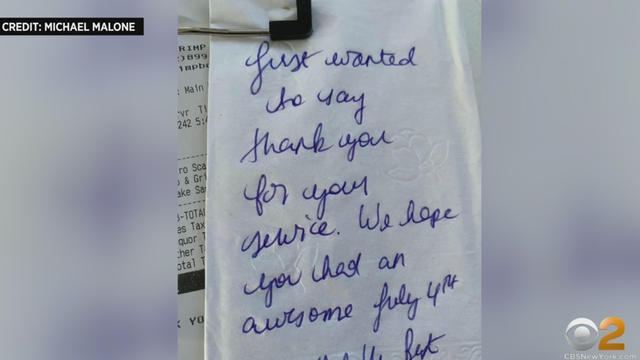 CREDIT: MICHAEL MALONE
Just wanted
to say
thank you
for your
service. We hope
you had an
awesome July 4th
Best
RIMP
)899
impb
Main
rvr
242 5:4
ro Sca
& Gr
ake Sa
-TOTAL
es Tax
iquor T
ther Ta
otal T
YO
2
CBSNewYork.com